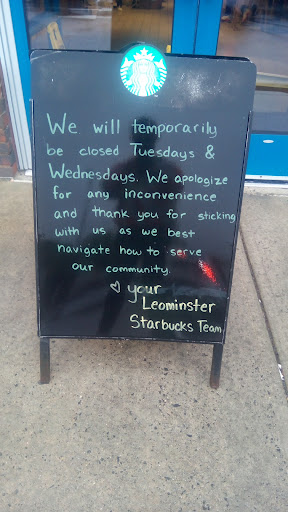 We will temporarily
be closed Tuesdays &
Wednesdays. We apologize
for any inconvenience
and thank you for sticking
with us as we best
navigate how to serve
our community.
♡ your
Leominster
Starbucks Team